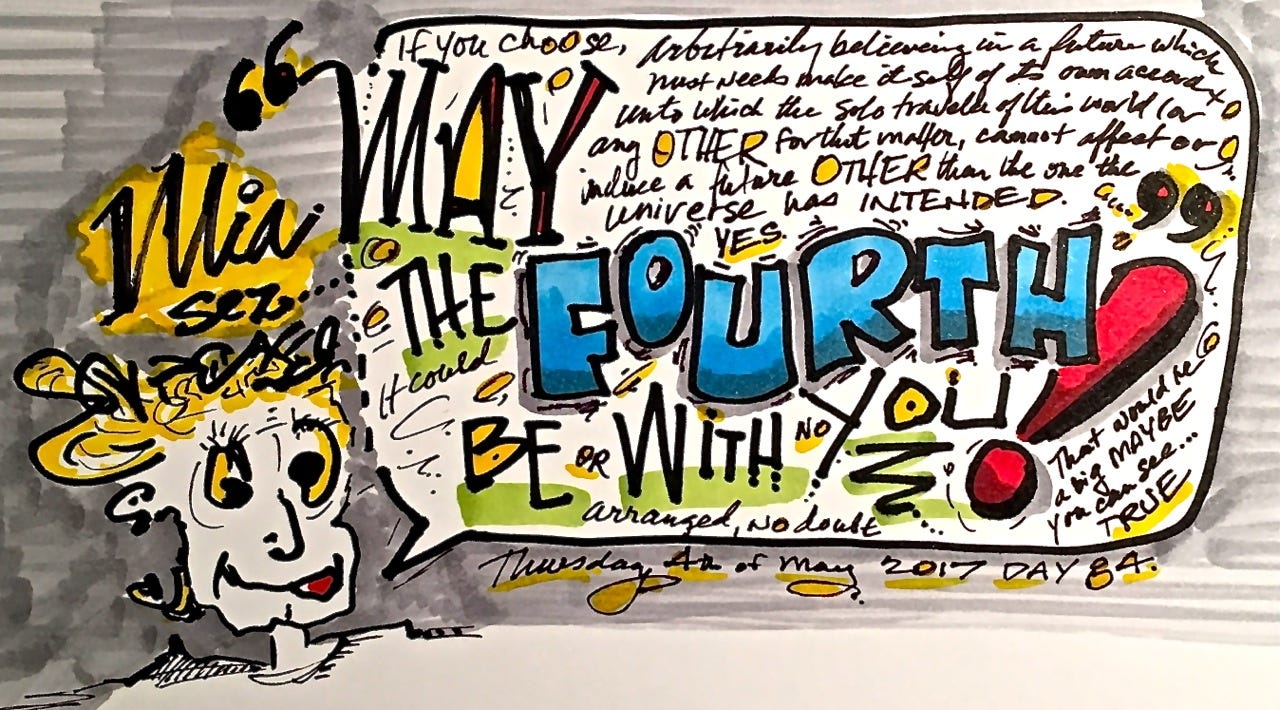 Mia
sez...
“
If you choose,
arbitrarily believing in a future which
must needs make itself of its own accord
unto which the solo traveler of this world (or
any OTHER for that matter, cannot affect or
induce a future OTHER than the one the
universe has INTENDED.
”
MAY
YES.
THE FOURTH!
It could
BE OR WITH NO YOU
arranged, no doubt
That would be
a big MAYBE
you can see...
TRUE
Thursday, 4th of May 2017 DAY 84.